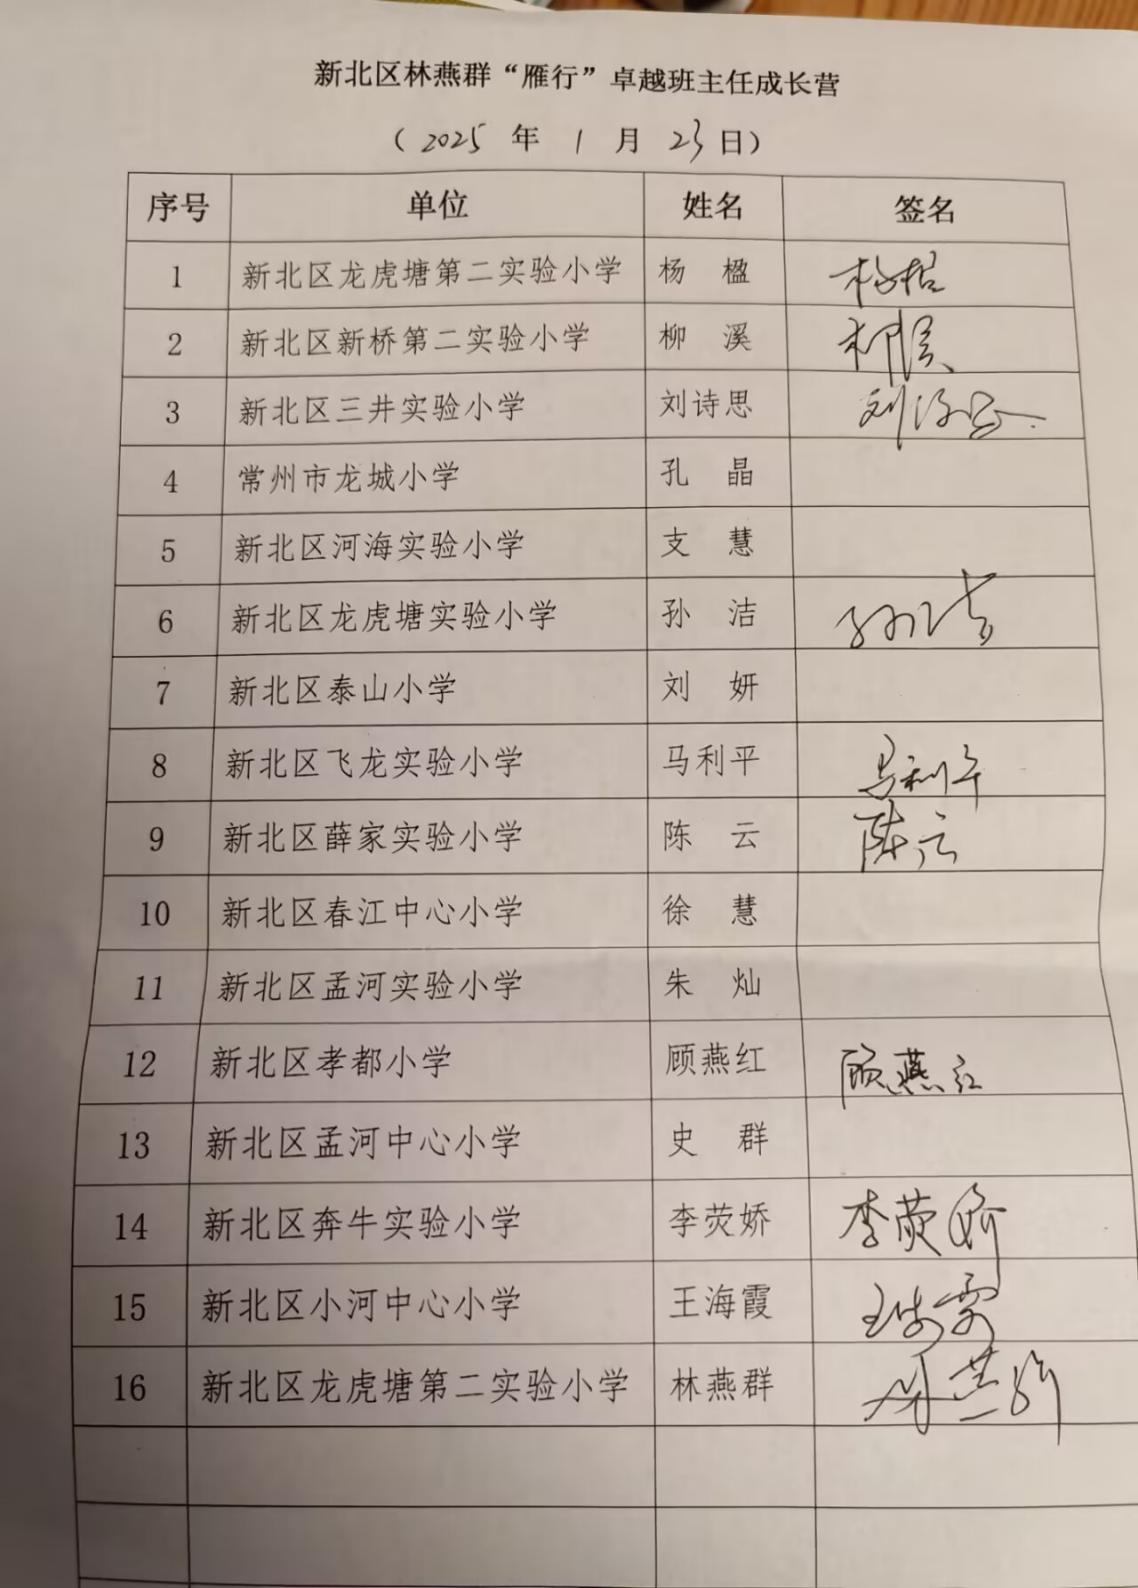 新北区林燕群“雁行”卓越班主任成长营
（ 2025 年 1 月 23 日）
序号 单位 姓名 签名
1 新北区龙虎塘第二实验小学 杨 楹 杨楹
2 新北区新桥第二实验小学 柳 溪 柳溪
3 新北区三井实验小学 刘诗思 刘诗思
4 常州市龙城小学 孔 晶
5 新北区河海实验小学 支 慧
6 新北区龙虎塘实验小学 孙 洁 孙洁
7 新北区泰山小学 刘 妍
8 新北区飞龙实验小学 马利平 马利平
9 新北区薛家实验小学 陈 云 陈云
10 新北区春江中心小学 徐 慧
11 新北区孟河实验小学 朱 灿
12 新北区孝都小学 顾燕红 顾燕红
13 新北区孟河中心小学 史 群
14 新北区奔牛实验小学 李荧娇 李荧娇
15 新北区小河中心小学 王海霞 王海霞
16 新北区龙虎塘第二实验小学 林燕群 林燕群